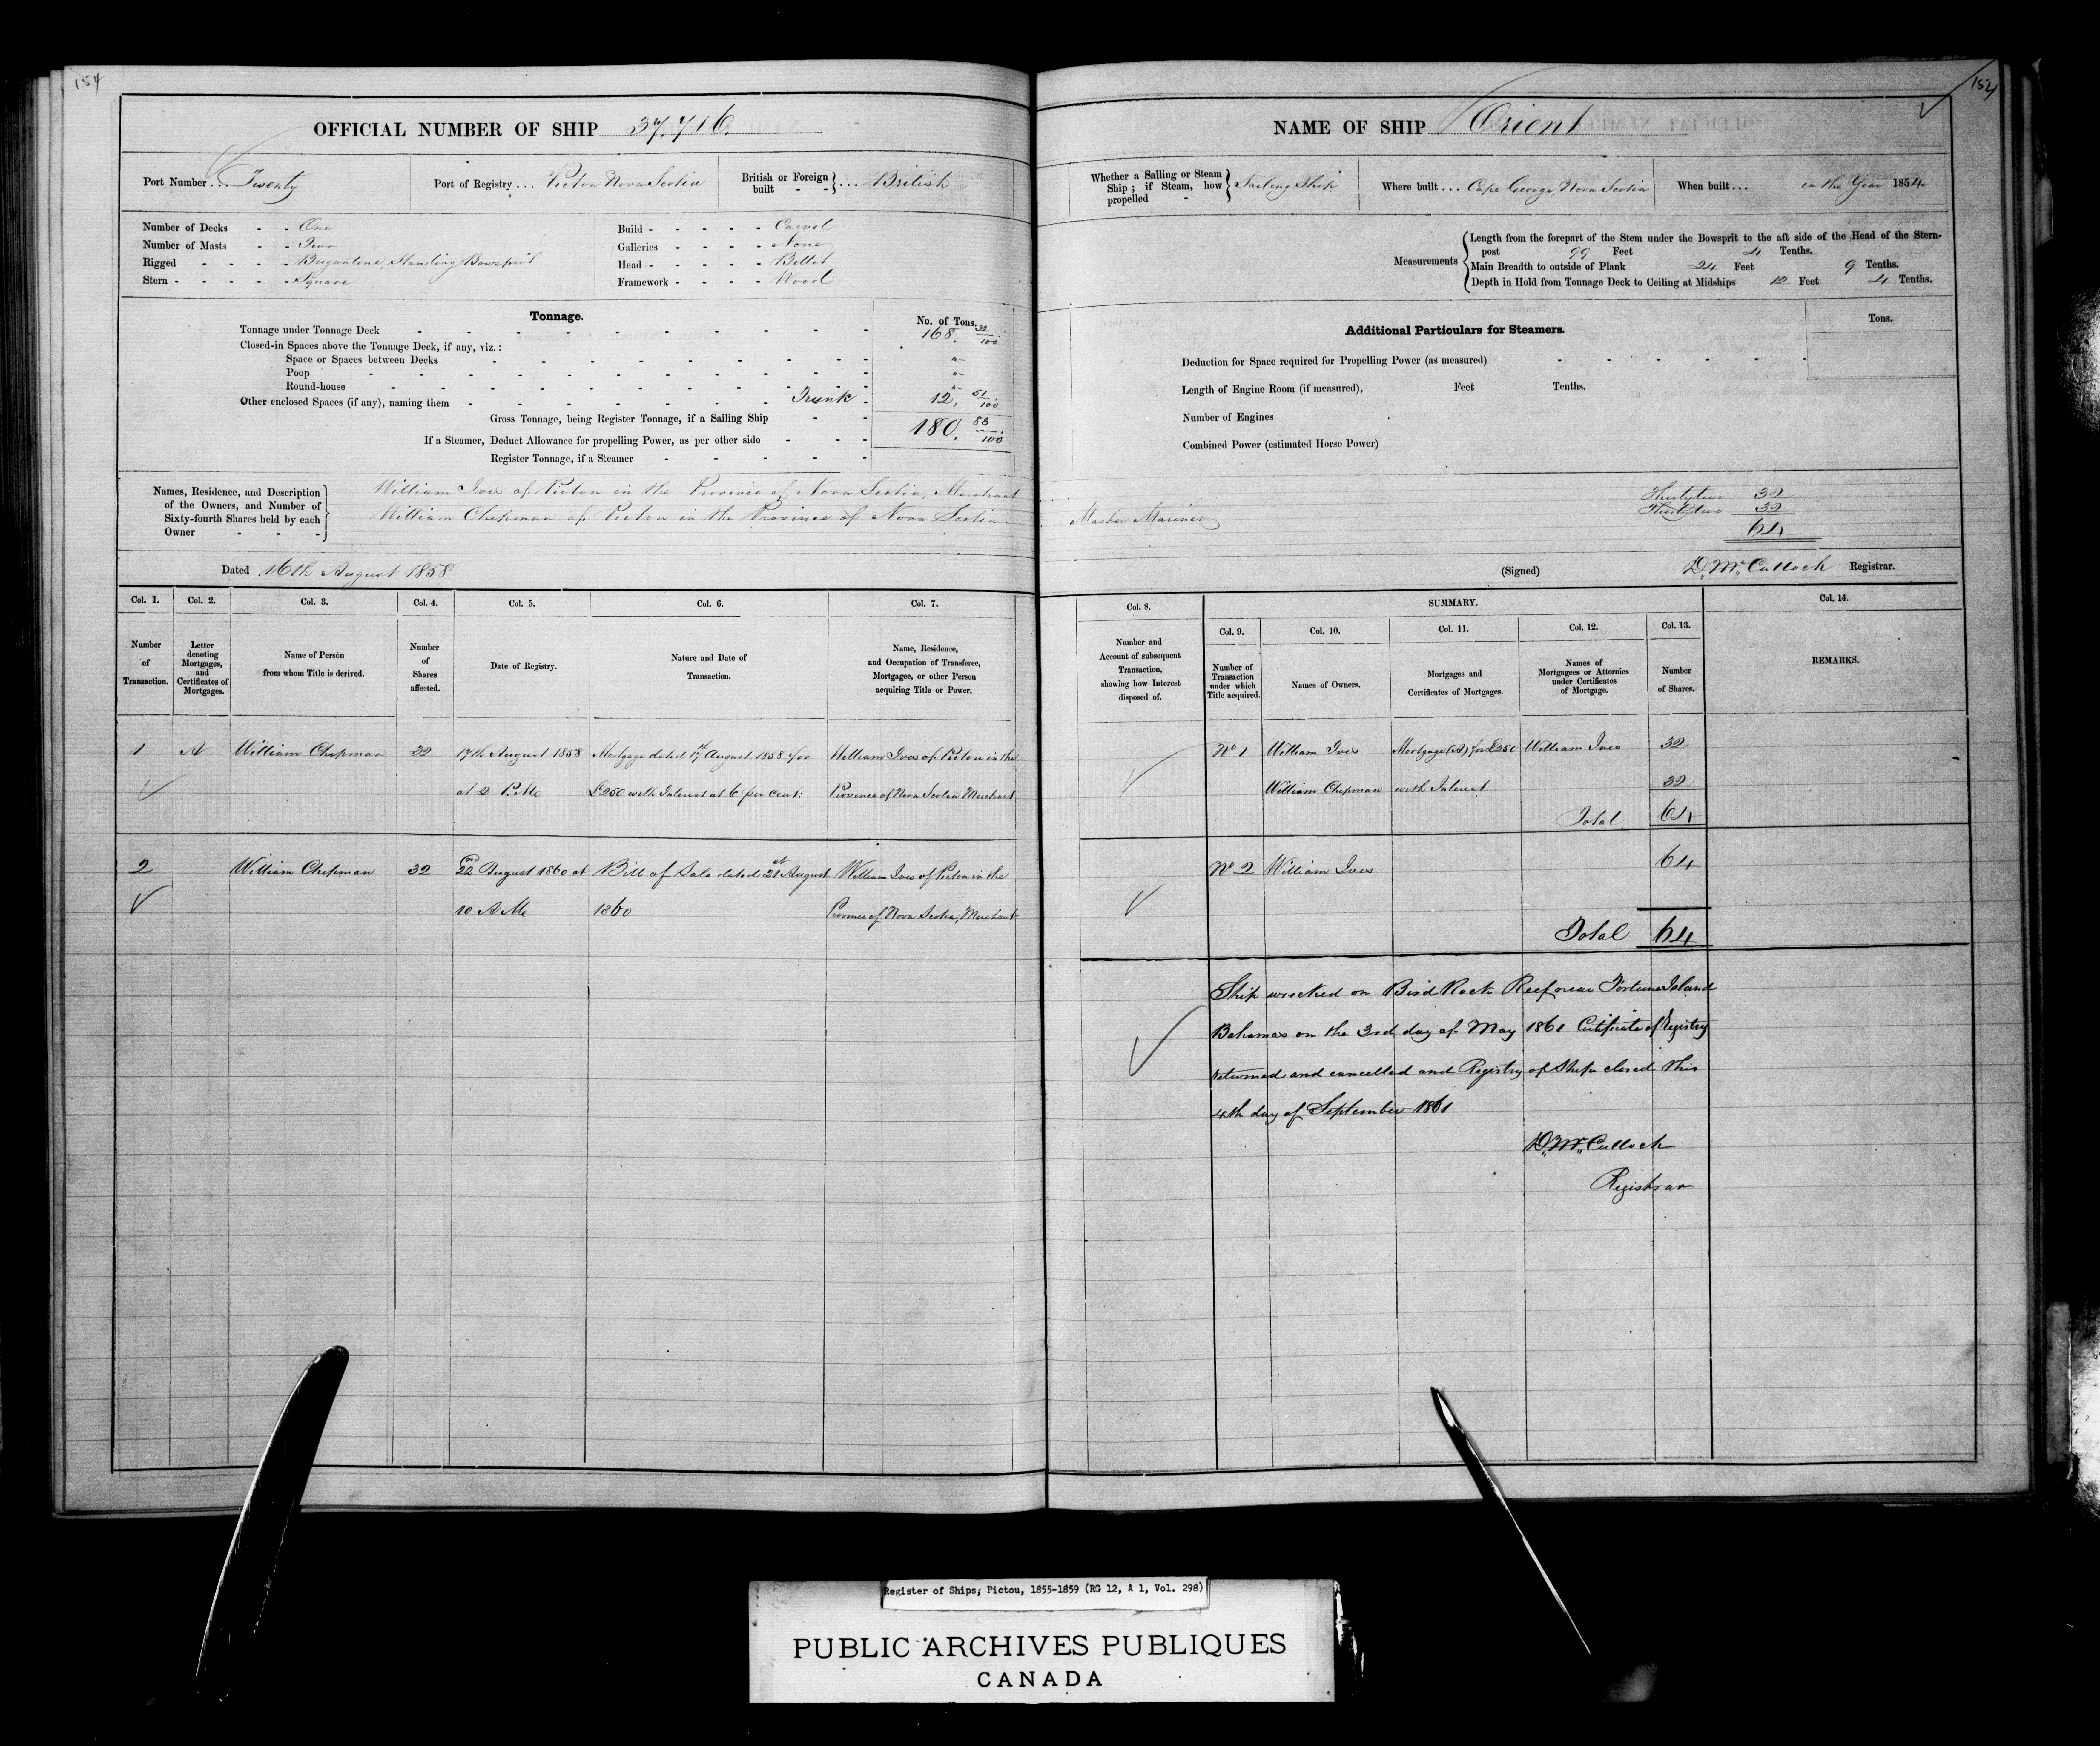 154
OFFICIAL NUMBER OF SHIP 37,716.
Port Number ... Twenty
Port of Registry ... Pictou Nova Scotia
British or Foreign built - - } ... British
Number of Decks - - One
Number of Masts - - Two
Rigged - - - - Brigantine, Standing Bowsprit
Stern - - - - - Square
Build - - - - - Carvel
Galleries - - - - None
Head - - - - - Billet
Framework - - - - Wood
Tonnage.
No. of Tons.
Tonnage under Tonnage Deck 168. 32/100
Closed-in Spaces above the Tonnage Deck, if any, viz.:
Space or Spaces between Decks "
Poop "
Round-house "
Other enclosed Spaces (if any), naming them Trunk 12. 51/100
Gross Tonnage, being Register Tonnage, if a Sailing Ship 180. 83/100
If a Steamer, Deduct Allowance for propelling Power, as per other side
Register Tonnage, if a Steamer
Names, Residence, and Description of the Owners, and Number of Sixty-fourth Shares held by each Owner
William Ives of Pictou in the Province of Nova Scotia, Merchant
William Chapman of Pictou in the Province of Nova Scotia
Dated 16th August 1858
Col. 1. Col. 2. Col. 3. Col. 4. Col. 5. Col. 6. Col. 7.
Number of Transaction.
Letter denoting Mortgages, and Certificates of Mortgages.
Name of Person from whom Title is derived.
Number of Shares affected.
Date of Registry.
Nature and Date of Transaction.
Name, Residence, and Occupation of Transferee, Mortgagee, or other Person acquiring Title or Power.
1 A William Chapman 32 17th August 1858 Mortgage dated 17th August 1858 for William Ives of Pictou in the
at 2 P.M. £250 with Interest at 6 per Cent: Province of Nova Scotia Merchant
2 William Chapman 32 22nd August 1860 at Bill of Sale dated 21st August William Ives of Pictou in the
10 A M 1860 Province of Nova Scotia, Merchant
154
NAME OF SHIP Orient
Whether a Sailing or Steam Ship; if Steam, how propelled - } Sailing Ship
Where built ... Cape George Nova Scotia
When built ... in the Year 1854.
Measurements
Length from the forepart of the Stem under the Bowsprit to the aft side of the Head of the Stern-
post 99 Feet 4 Tenths.
Main Breadth to outside of Plank 24 Feet 9 Tenths.
Depth in Hold from Tonnage Deck to Ceiling at Midships 12 Feet 4 Tenths.
Additional Particulars for Steamers.
Tons.
Deduction for Space required for Propelling Power (as measured)
Length of Engine Room (if measured), Feet Tenths.
Number of Engines
Combined Power (estimated Horse Power)
Thirty two 32
Master Mariner Thirty two 32
64
(Signed) D. McCulloch Registrar.
Col. 8. SUMMARY. Col. 14.
Col. 9. Col. 10. Col. 11. Col. 12. Col. 13.
Number and Account of subsequent Transaction, showing how Interest disposed of.
Number of Transaction under which Title acquired.
Names of Owners.
Mortgages and Certificates of Mortgages.
Names of Mortgagees or Attornies under Certificates of Mortgage.
Number of Shares.
REMARKS.
No 1 William Ives Mortgage (A) for £250 William Ives 32
William Chapman with Interest 32
Total 64
No 2 William Ives 64
Total 64
Ship wrecked on Bird Rock Reef near Fortune Island
Bahamas on the 3rd day of May 1861 Certificate of Registry
returned and cancelled and Registry of Ship closed this
4th day of September 1861
D. McCulloch
Registrar
Register of Ships, Pictou, 1855-1859 (RG 12, A 1, Vol. 298)
PUBLIC ARCHIVES PUBLIQUES
CANADA